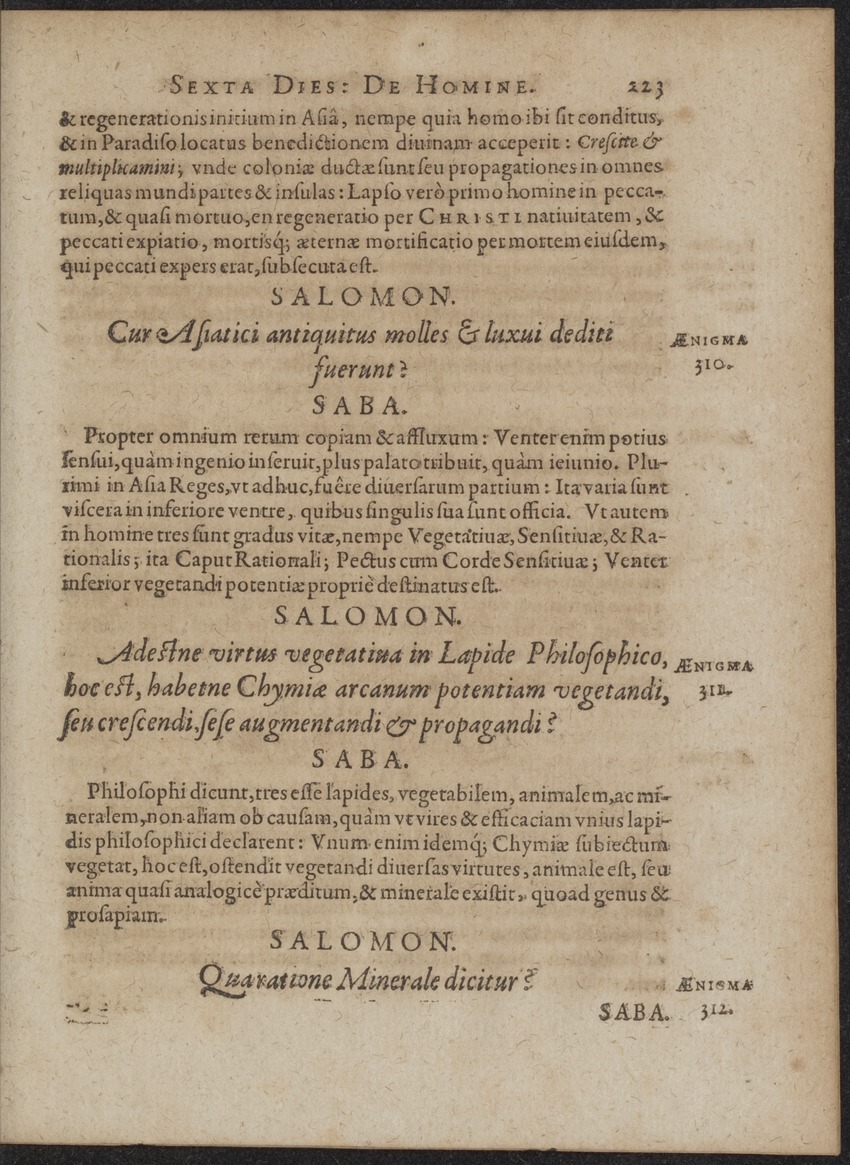 SEXTA DIES: DE HOMINE. 223
& regenerationis initium in Asiâ, nempe quia homo ibi sit conditus,
& in Paradiso locatus benedictionem diuinam acceperit: Crescite &
multiplicamini; vnde coloniæ ductæ sunt seu propagationes in omnes
reliquas mundi partes & insulas: Lapso verò primo homine in pecca-
tum, & quasi mortuo, en regeneratio per CHRISTI natiuitatem, &
peccati expiatio, mortisq́; æternæ mortificatio per mortem eiusdem,
qui peccati expers erat, subsecuta est.
SALOMON.
Cur Asiatici antiquitus molles & luxui dediti
fuerunt?
ÆNIGMA
310.
SABA.
Propter omnium rerum copiam & affluxum: Venter enim potius
sensui, quàm ingenio inseruit, plus palato tribuit, quàm ieiunio. Plu-
rimi in Asia Reges, vt adhuc, fuêre diuersarum partium: Ita varia sunt
viscera in inferiore ventre, quibus singulis sua sunt officia. Vt autem
in homine tres sunt gradus vitæ, nempe Vegetatiuæ, Sensitiuæ, & Ra-
tionalis; ita Caput Rationali; Pectus cum Corde Sensitiuæ; Venter
inferior vegetandi potentiæ propriè destinatus est.
SALOMON.
Adestne virtus vegetatiua in Lapide Philosophico,
hoc est, habetne Chymiæ arcanum potentiam vegetandi,
seu crescendi, sese augmentandi & propagandi?
ÆNIGMA
311.
SABA.
Philosophi dicunt, tres esse lapides, vegetabilem, animalem, ac mi-
neralem, non aliam ob causam, quàm vt vires & efficaciam vnius lapi-
dis philosophici declarent: Vnum enim idemq́; Chymiæ subiectum
vegetat, hoc est, ostendit vegetandi diuersas virtutes, animale est, seu
anima quasi analogicè præditum, & minerale existit, quoad genus &
prosapiam.
SALOMON.
Qua ratione Minerale dicitur?
ÆNIGMA
312.
SABA.